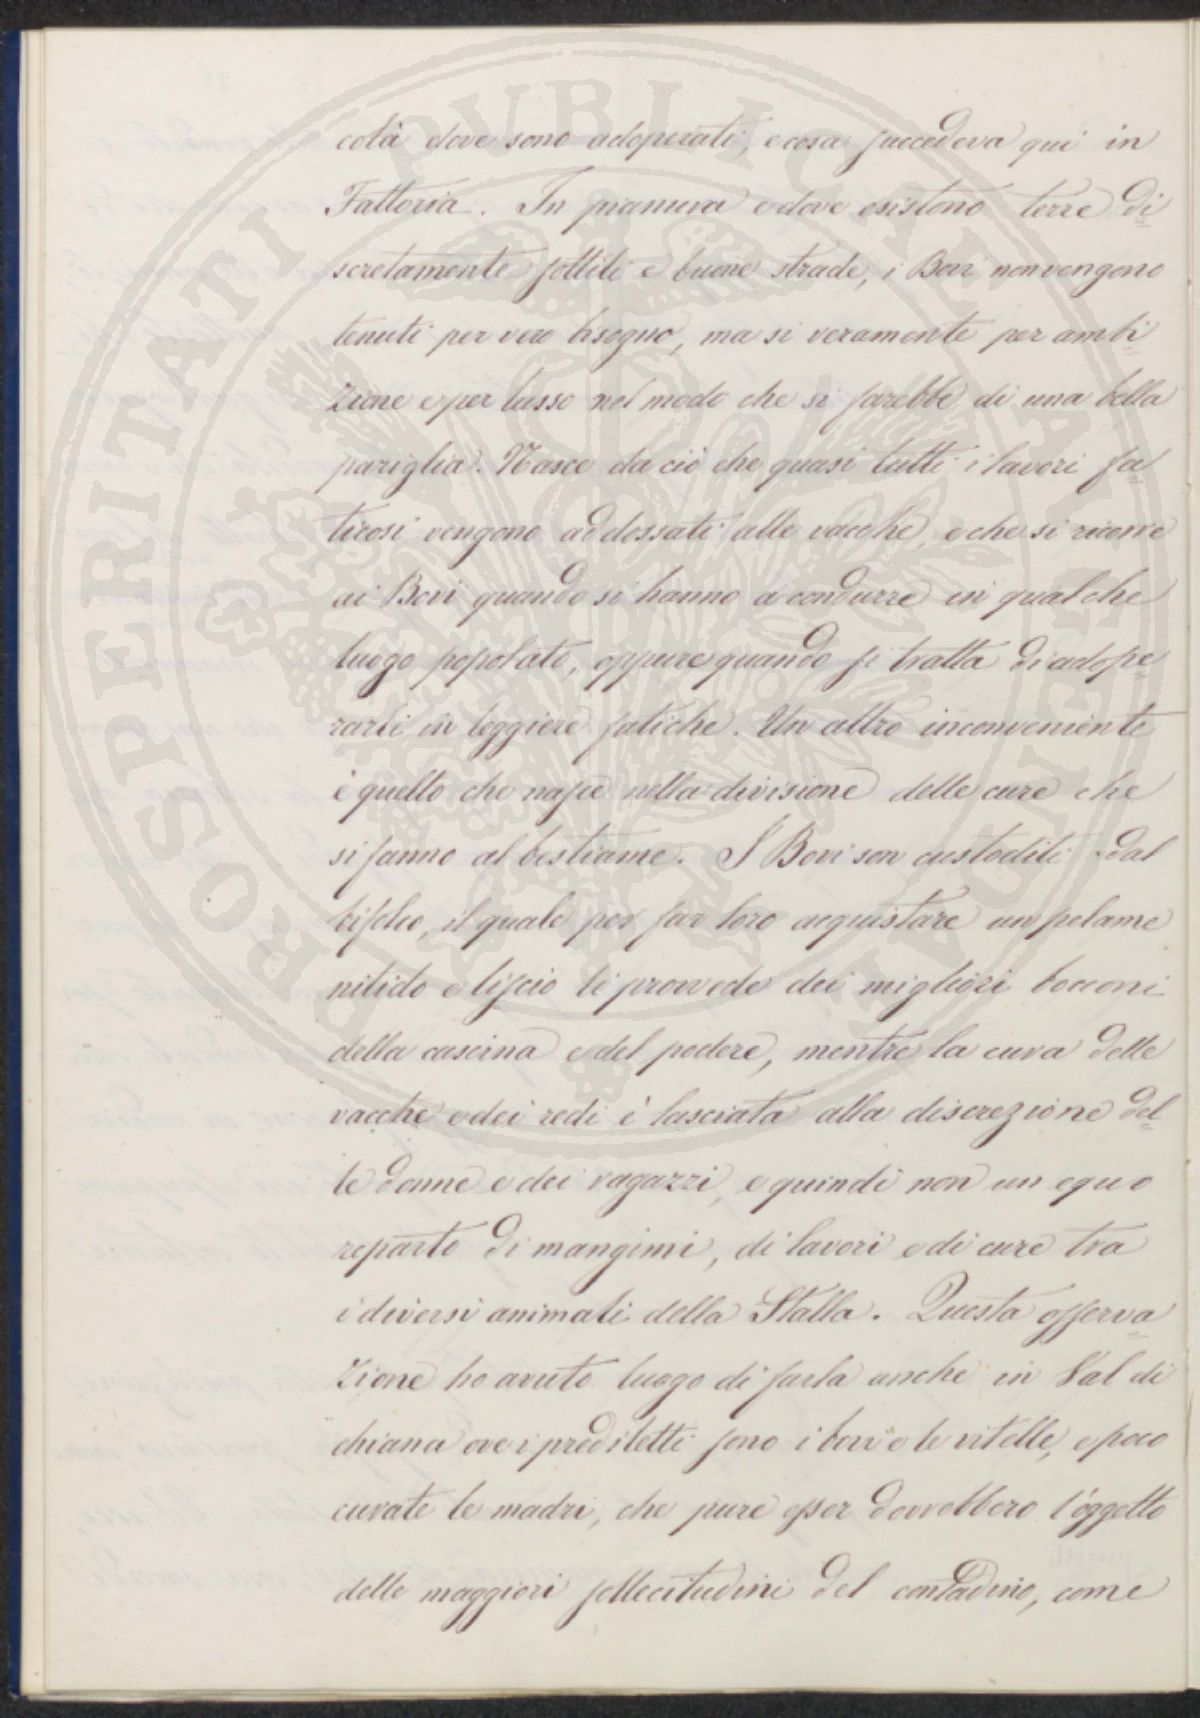 PROSPERITATI PUBLICAE AUGENDAE
colà dove sono adoperati, e cosa succedeva qui in
Fattoria. In pianura e dove esistono terre di
scretamente sottili e buone strade, i Bovi non vengono
tenuti per vero bisogno, ma si veramente per ambi
zione e per lusso nel modo che si farebbe di una bella
pariglia. Nasce da ciò che quasi tutti i lavori fa
ticosi vengono addossati alle vacche, e che si ricorre
ai Bovi quando si hanno a condurre in qualche
luogo popolato, oppure quando si tratta di adope
rarli in leggiere fatiche. Un altro inconveniente
è quello che nasce nella divisione delle cure che
si fanno al bestiame. I Bovi son custoditi dal
bifolco, il quale per far loro acquistare un pelame
nitido e liscio li provvede dei migliori bocconi
della cascina e del podere, mentre la cura delle
vacche e dei redi è lasciata alla discrezione del
le donne e dei ragazzi, e quindi non un equo
reparto di mangimi, di lavori e di cure tra
i diversi animali della Stalla. Questa osserva
zione ho avuto luogo di farla anche in Val di
chiana ove i prediletti sono i bovi e le vitelle, e poco
curate le madri, che pure esser dovrebbero l'oggetto
delle maggiori sollecitudini del contadino, come